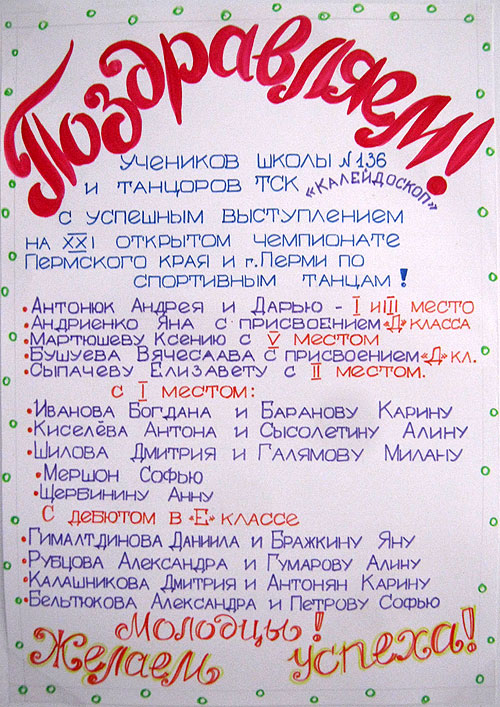 Поздравляем!
учеников школы № 136
и танцоров ТСК «Калейдоскоп»
с успешным выступлением
на XXI открытом чемпионате
Пермского края и г. Перми по
спортивным танцам!
• Антонюк Андрея и Дарью - I и III место
• Андриенко Яна с присвоением «Д» класса
• Мартюшеву Ксению с V местом
• Бушуева Вячеслава с присвоением «Д» кл.
• Сыпачеву Елизавету с II местом.
с I местом:
• Иванова Богдана и Баранову Карину
• Киселёва Антона и Сысолетину Алину
• Шилова Дмитрия и Галямову Милану
• Мершон Софью
• Щербинину Анну
С дебютом в «Е» классе
• Гималтдинова Даниила и Бражкину Яну
• Рубцова Александра и Гумарову Алину
• Калашникова Дмитрия и Антонян Карину
• Бельтюкова Александра и Петрову Софью
Молодцы!
Желаем успеха!